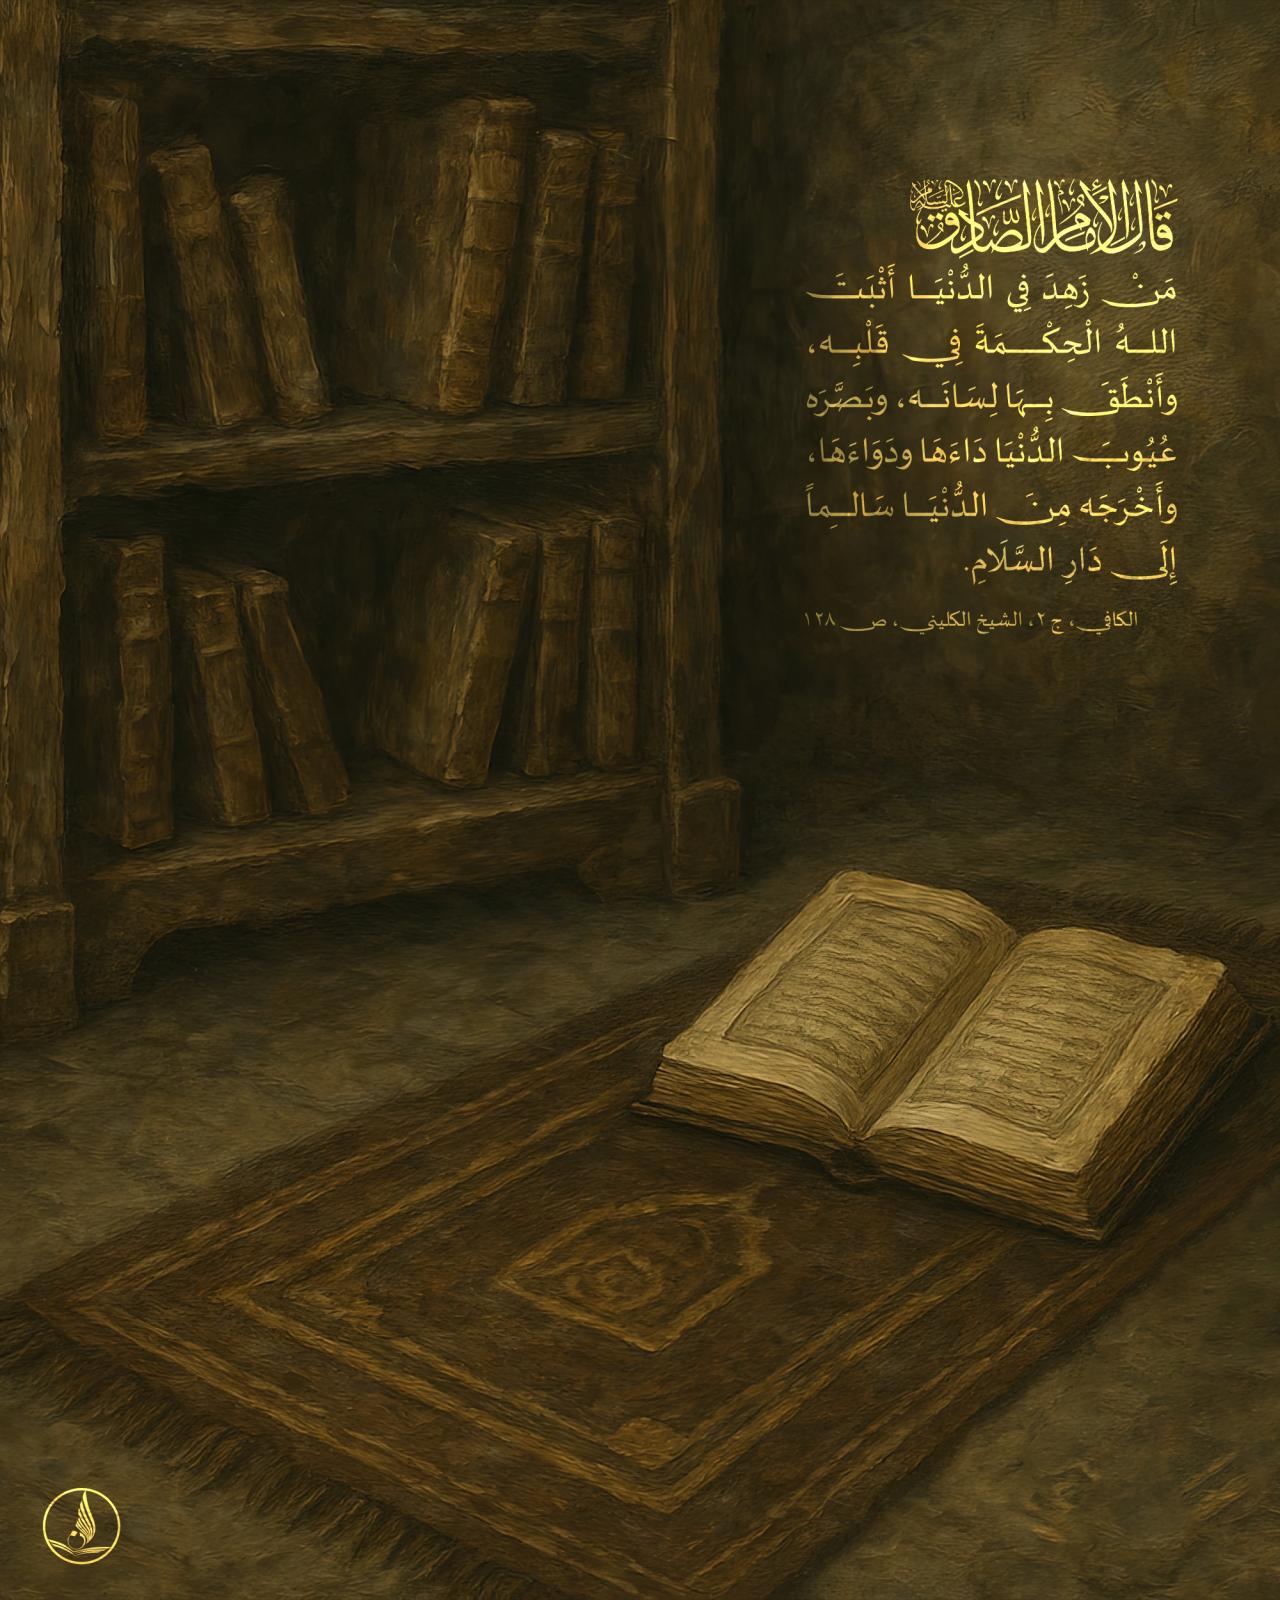 قَالَ الْإِمَامُ الصَّادِقُ عَلَيْهِ السَّلَامُ
مَنْ زَهِدَ فِي الدُّنْيَا أَثْبَتَ
اللهُ الْحِكْمَةَ فِي قَلْبِه،
وأَنْطَقَ بِهَا لِسَانَه، وبَصَّرَه
عُيُوبَ الدُّنْيَا دَاءَهَا ودَوَاءَهَا،
وأَخْرَجَه مِنَ الدُّنْيَا سَالِماً
إِلَى دَارِ السَّلَامِ.
الكافي، ج ٢، الشيخ الكليني، ص ١٢٨